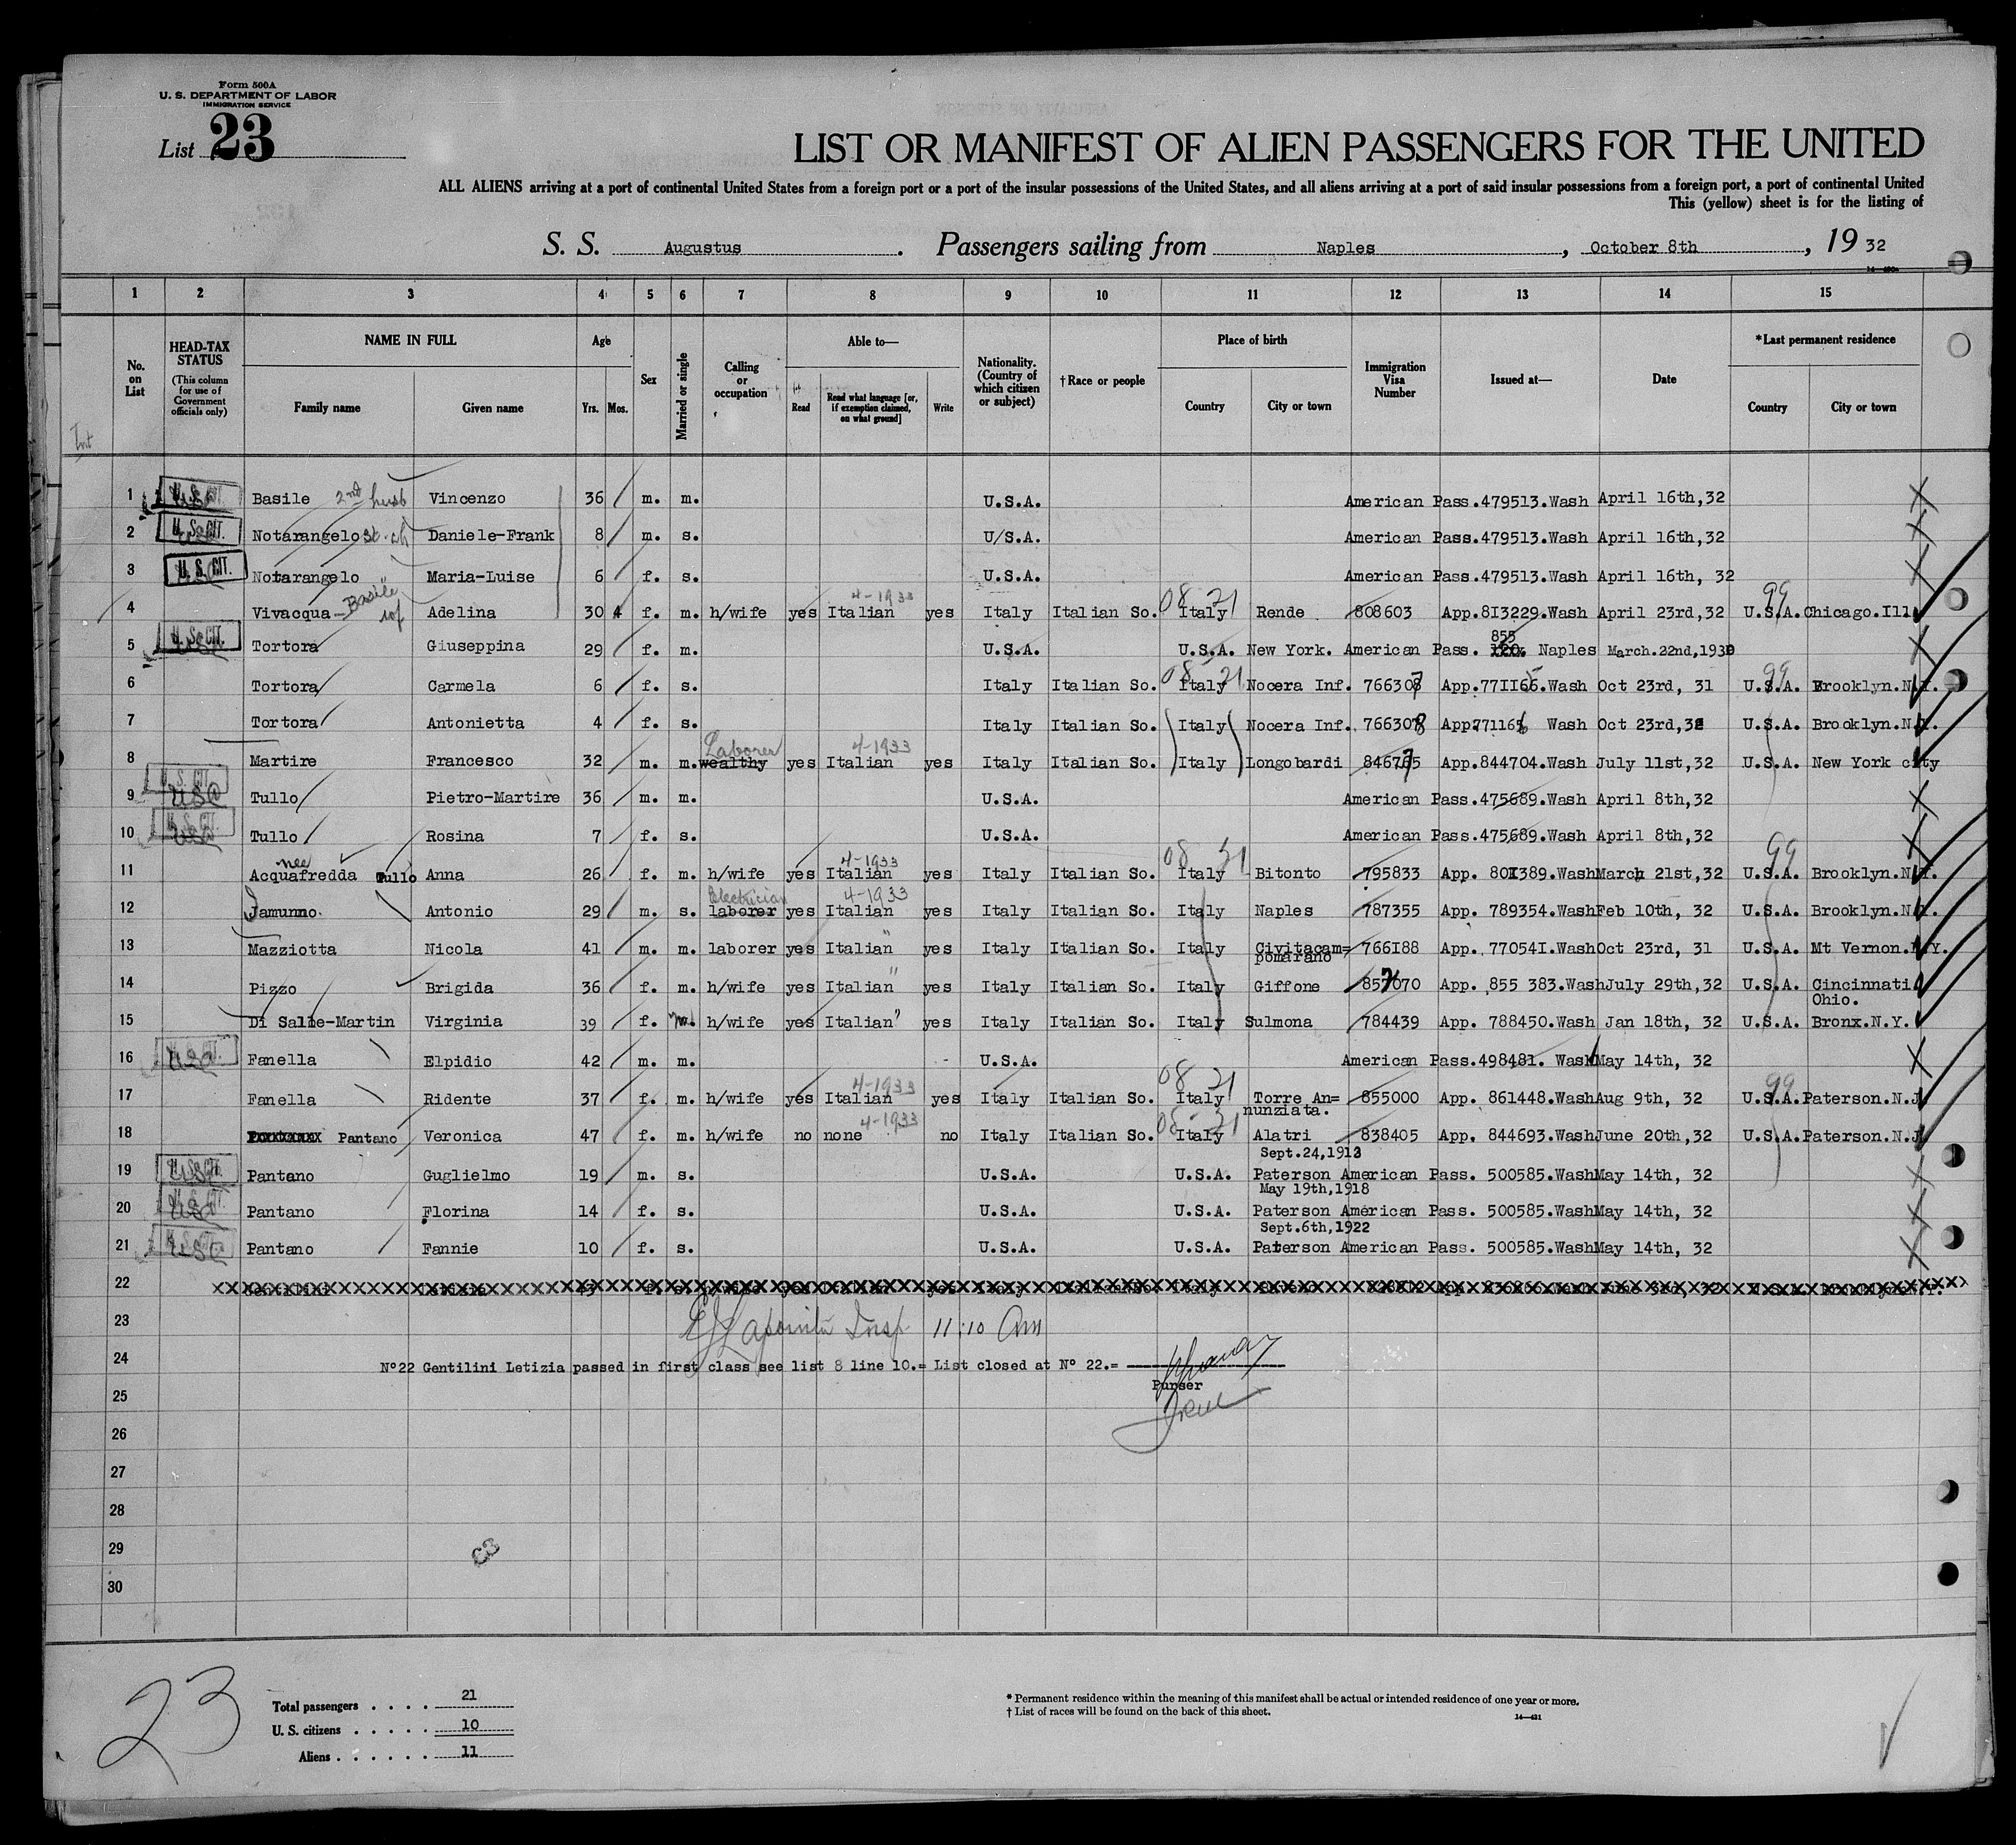 Form 500A
U. S. DEPARTMENT OF LABOR
IMMIGRATION SERVICE
List 23
LIST OR MANIFEST OF ALIEN PASSENGERS FOR THE UNITED
ALL ALIENS arriving at a port of continental United States from a foreign port or a port of the insular possessions of the United States, and all aliens arriving at a port of said insular possessions from a foreign port, a port of continental United
This (yellow) sheet is for the listing of
S. S. Augustus. Passengers sailing from Naples, October 8th, 19 32
1 2 3 4 5 6 7 8 9 10 11 12 13 14 15
No. on List
HEAD-TAX STATUS (This column for use of Government officials only)
NAME IN FULL Family name Given name
Age Yrs. Mos.
Sex
Married or single
Calling or occupation
Able to— Read Read what language [or, if exemption claimed, on what ground] Write
Nationality. (Country of which citizen or subject)
†Race or people
Place of birth Country City or town
Immigration Visa Number
Issued at—
Date
*Last permanent residence Country City or town
1 U. S. CIT. Basile 2nd husb Vincenzo 36 m. m. U.S.A. American Pass.479513.Wash April 16th,32
2 U. S. CIT. Notarangelo Daniele-Frank 8 m. s. U/S.A. American Pass.479513.Wash April 16th,32
3 U. S. CIT. Notarangelo Maria-Luise 6 f. s. U.S.A. American Pass.479513.Wash April 16th, 32
4 Vivacqua - Basile Adelina 30 4 f. m. h/wife yes Italian 4-1933 yes Italy Italian So. 08 21 Italy Rende 808603 App.8I3229.Wash April 23rd,32 99 U.S.A. Chicago.Ill
5 U. S. CIT. Tortora Giuseppina 29 f. m. U.S.A. U.S.A. New York. American Pass. 855 Naples March.22nd,1930
6 Tortora Carmela 6 f. s. Italy Italian So. 08 21 Italy Nocera Inf. 766307 App.77II65.Wash Oct 23rd, 31 99 U.S.A. Brooklyn.N.Y.
7 Tortora Antonietta 4 f. s. Italy Italian So. Italy Nocera Inf. 766308 App.771166 Wash Oct 23rd,32 U.S.A. Brooklyn.N.Y.
8 Martire Francesco 32 m. m. Laborer wealthy yes Italian 4-1933 yes Italy Italian So. Italy Longobardi 846775 App.844704.Wash July 11st,32 U.S.A. New York city
9 U. S. CIT. Tullo Pietro-Martire 36 m. m. U.S.A. American Pass.475689.Wash April 8th,32
10 U. S. CIT. Tullo Rosina 7 f. s. U.S.A. American Pass.475689.Wash April 8th,32
11 nee Acquafredda Tullo Anna 26 f. m. h/wife yes Italian 4-1933 yes Italy Italian So. 08 21 Italy Bitonto 795833 App. 80I389.Wash March 21st,32 99 U.S.A. Brooklyn.N.Y.
12 Jamunno. Antonio 29 m. s. Electrician laborer yes Italian 4-1933 yes Italy Italian So. Italy Naples 787355 App. 789354.Wash Feb 10th, 32 U.S.A. Brooklyn.N.Y.
13 Mazziotta Nicola 41 m. m. laborer yes Italian " yes Italy Italian So. Italy Civitacam=pomarano 766I88 App. 77054I.Wash Oct 23rd, 31 U.S.A. Mt Vernon.N.Y.
14 Pizzo Brigida 36 f. m. h/wife yes Italian " yes Italy Italian So. Italy Giffone 857070 App. 855 383.Wash July 29th,32 U.S.A. Cincinnati Ohio.
15 Di Salle-Martin Virginia 39 f. h/wife yes Italian " yes Italy Italian So. Italy Sulmona 784439 App. 788450.Wash Jan 18th, 32 U.S.A. Bronx.N.Y.
16 U. S. CIT. Fanella Elpidio 42 m. m. U.S.A. American Pass.498481. Wash May 14th, 32
17 Fanella Ridente 37 f. m. h/wife yes Italian 4-1933 yes Italy Italian So. 08 21 Italy Torre An=nunziata. 855000 App. 861448.Wash Aug 9th, 32 99 U.S.A. Paterson.N.J.
18 Pantano Veronica 47 f. m. h/wife no none 4-1933 no Italy Italian So. 08-21 Italy Alatri 838405 App. 844693.Wash June 20th,32 U.S.A. Paterson.N.J.
Sept.24,1913
19 U. S. CIT. Pantano Guglielmo 19 m. s. U.S.A. U.S.A. Paterson American Pass. 500585.Wash May 14th, 32
May 19th,1918
20 U. S. CIT. Pantano Florina 14 f. s. U.S.A. U.S.A. Paterson American Pass. 500585.Wash May 14th, 32
Sept.6th,1922
21 U. S. CIT. Pantano Fannie 10 f. s. U.S.A. U.S.A. Paterson American Pass. 500585.Wash May 14th, 32
22
23 Lapointe Insp 11:10 Am
24 Nº22 Gentilini Letizia passed in first class see list 8 line 10.= List closed at Nº 22.=
Purser
25
26
27
28
29
30
23
Total passengers . . . . 21
U. S. citizens . . . . . 10
Aliens . . . . . . 11
* Permanent residence within the meaning of this manifest shall be actual or intended residence of one year or more.
† List of races will be found on the back of this sheet.
14—421